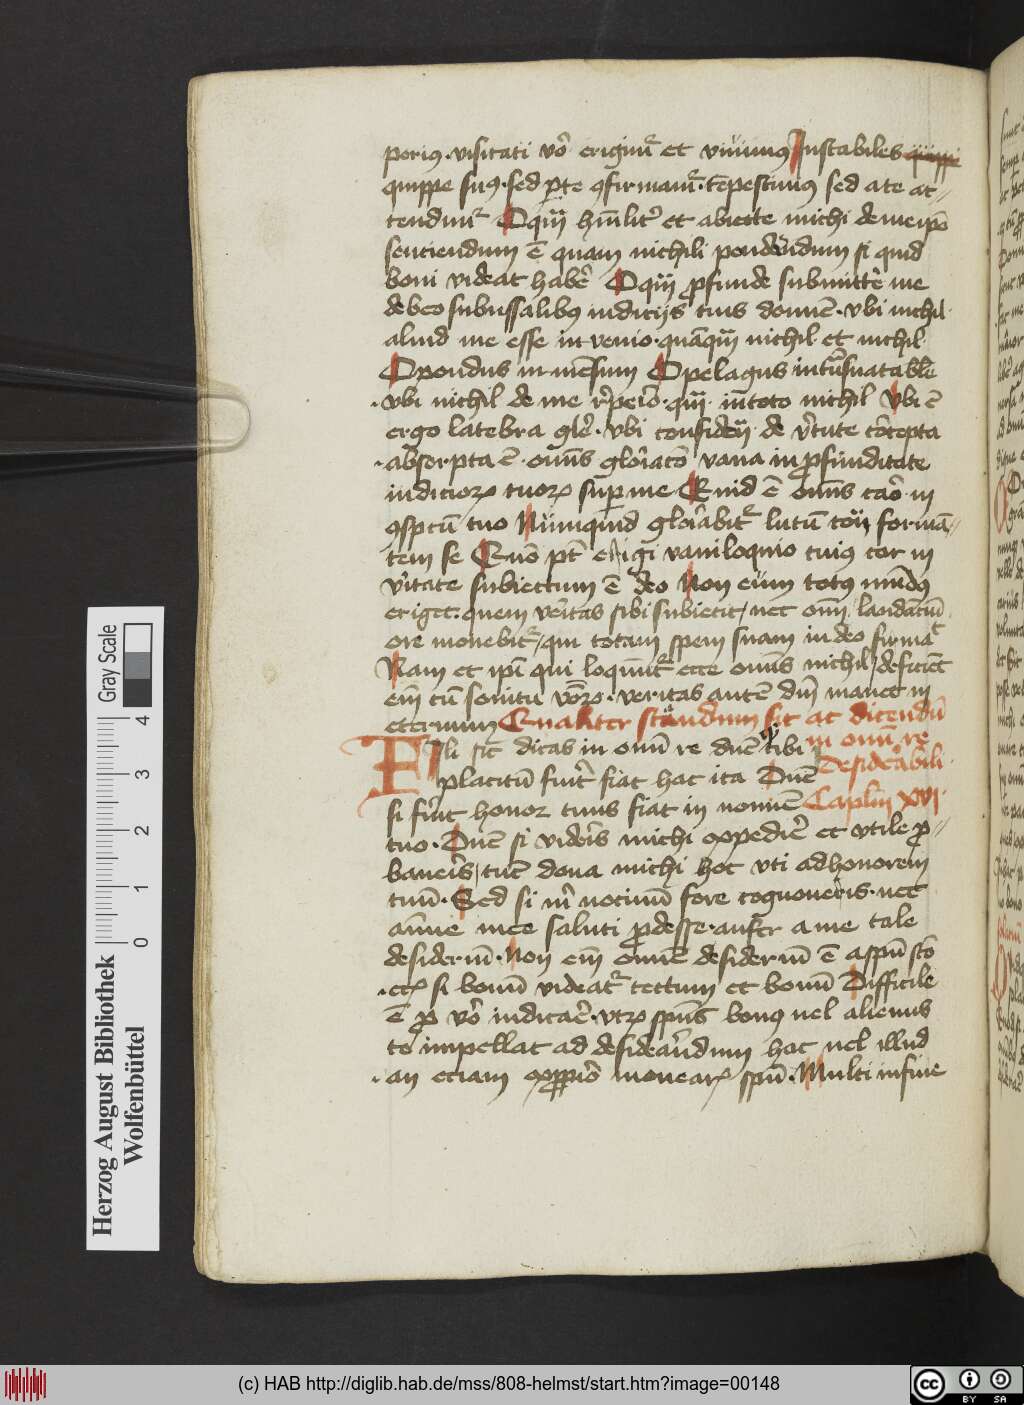 porius · visitati vo erigimur et viuimus Instabiles
quippe sus · sed p te confirmamur · tepescimus sed a te ac=
cendimur O quam humiliter et abiecte michi de me ipo
senciendum e quam nichili ponderandum si quid
boni videar habere O quam profunde submittere me
debeo sub abissalibus iudicijs tuis domine · vbi nichil
aliud me esse in venio · quam quam nichil et nichil
O pondus in mensum O pelagus intransnatabile
· vbi nichil de me reperio · quam in toto nichil Vbi e
ergo latebra glorie · vbi confidencia de virtute concepta
· absorpta e · omnis gloriacio vana in profunditate
iudiciorum tuorum super me Quid e omnis caro in
conspectu tuo Numquid gloriabitur lutum contra forman=
tem se Quomodo potest erigi vaniloquio cuius cor in
veritate subiectum e deo Non eum totus mundus
eriget · quem veritas sibi subiecit / nec omnium laudancium
ore mouebitur / qui totam spem suam in deo firmat
Nam et ipsi qui loquuntur ecce omnes nichil / deficient
enim cum sonitu verborum · veritas autem domini manet in
eternum Qualiter standum sit ac dicendum
Fili sic dicas in omni re domine si tibi in omni re
placitum fuerit fiat hoc ita Domine desiderabili ·
si fuerit honor tuus fiat in nomine Caplm xvi ·
tuo · Domine si videris michi expedire et vtile pro=
baueris / tunc dona michi hoc vti ad honorem
tuum · Sed si michi nociuum fore cognoueris · nec
anime mee saluti prodesse · aufer a me tale
desiderium · Non enim omne desiderium e a spiritu sancto
· etc si bonum videatur rectum et bonum Difficile
e pro vero iudicare · vtrum spiritus bonus uel alienus
te impellat ad desiderandum hoc uel illud
· an eciam ex proprio mouearis spiritu · Multi in fine
Gray Scale
4 3 2 1 0
Herzog August Bibliothek
Wolfenbüttel
(c) HAB http://diglib.hab.de/mss/808-helmst/start.htm?image=00148
cc BY SA